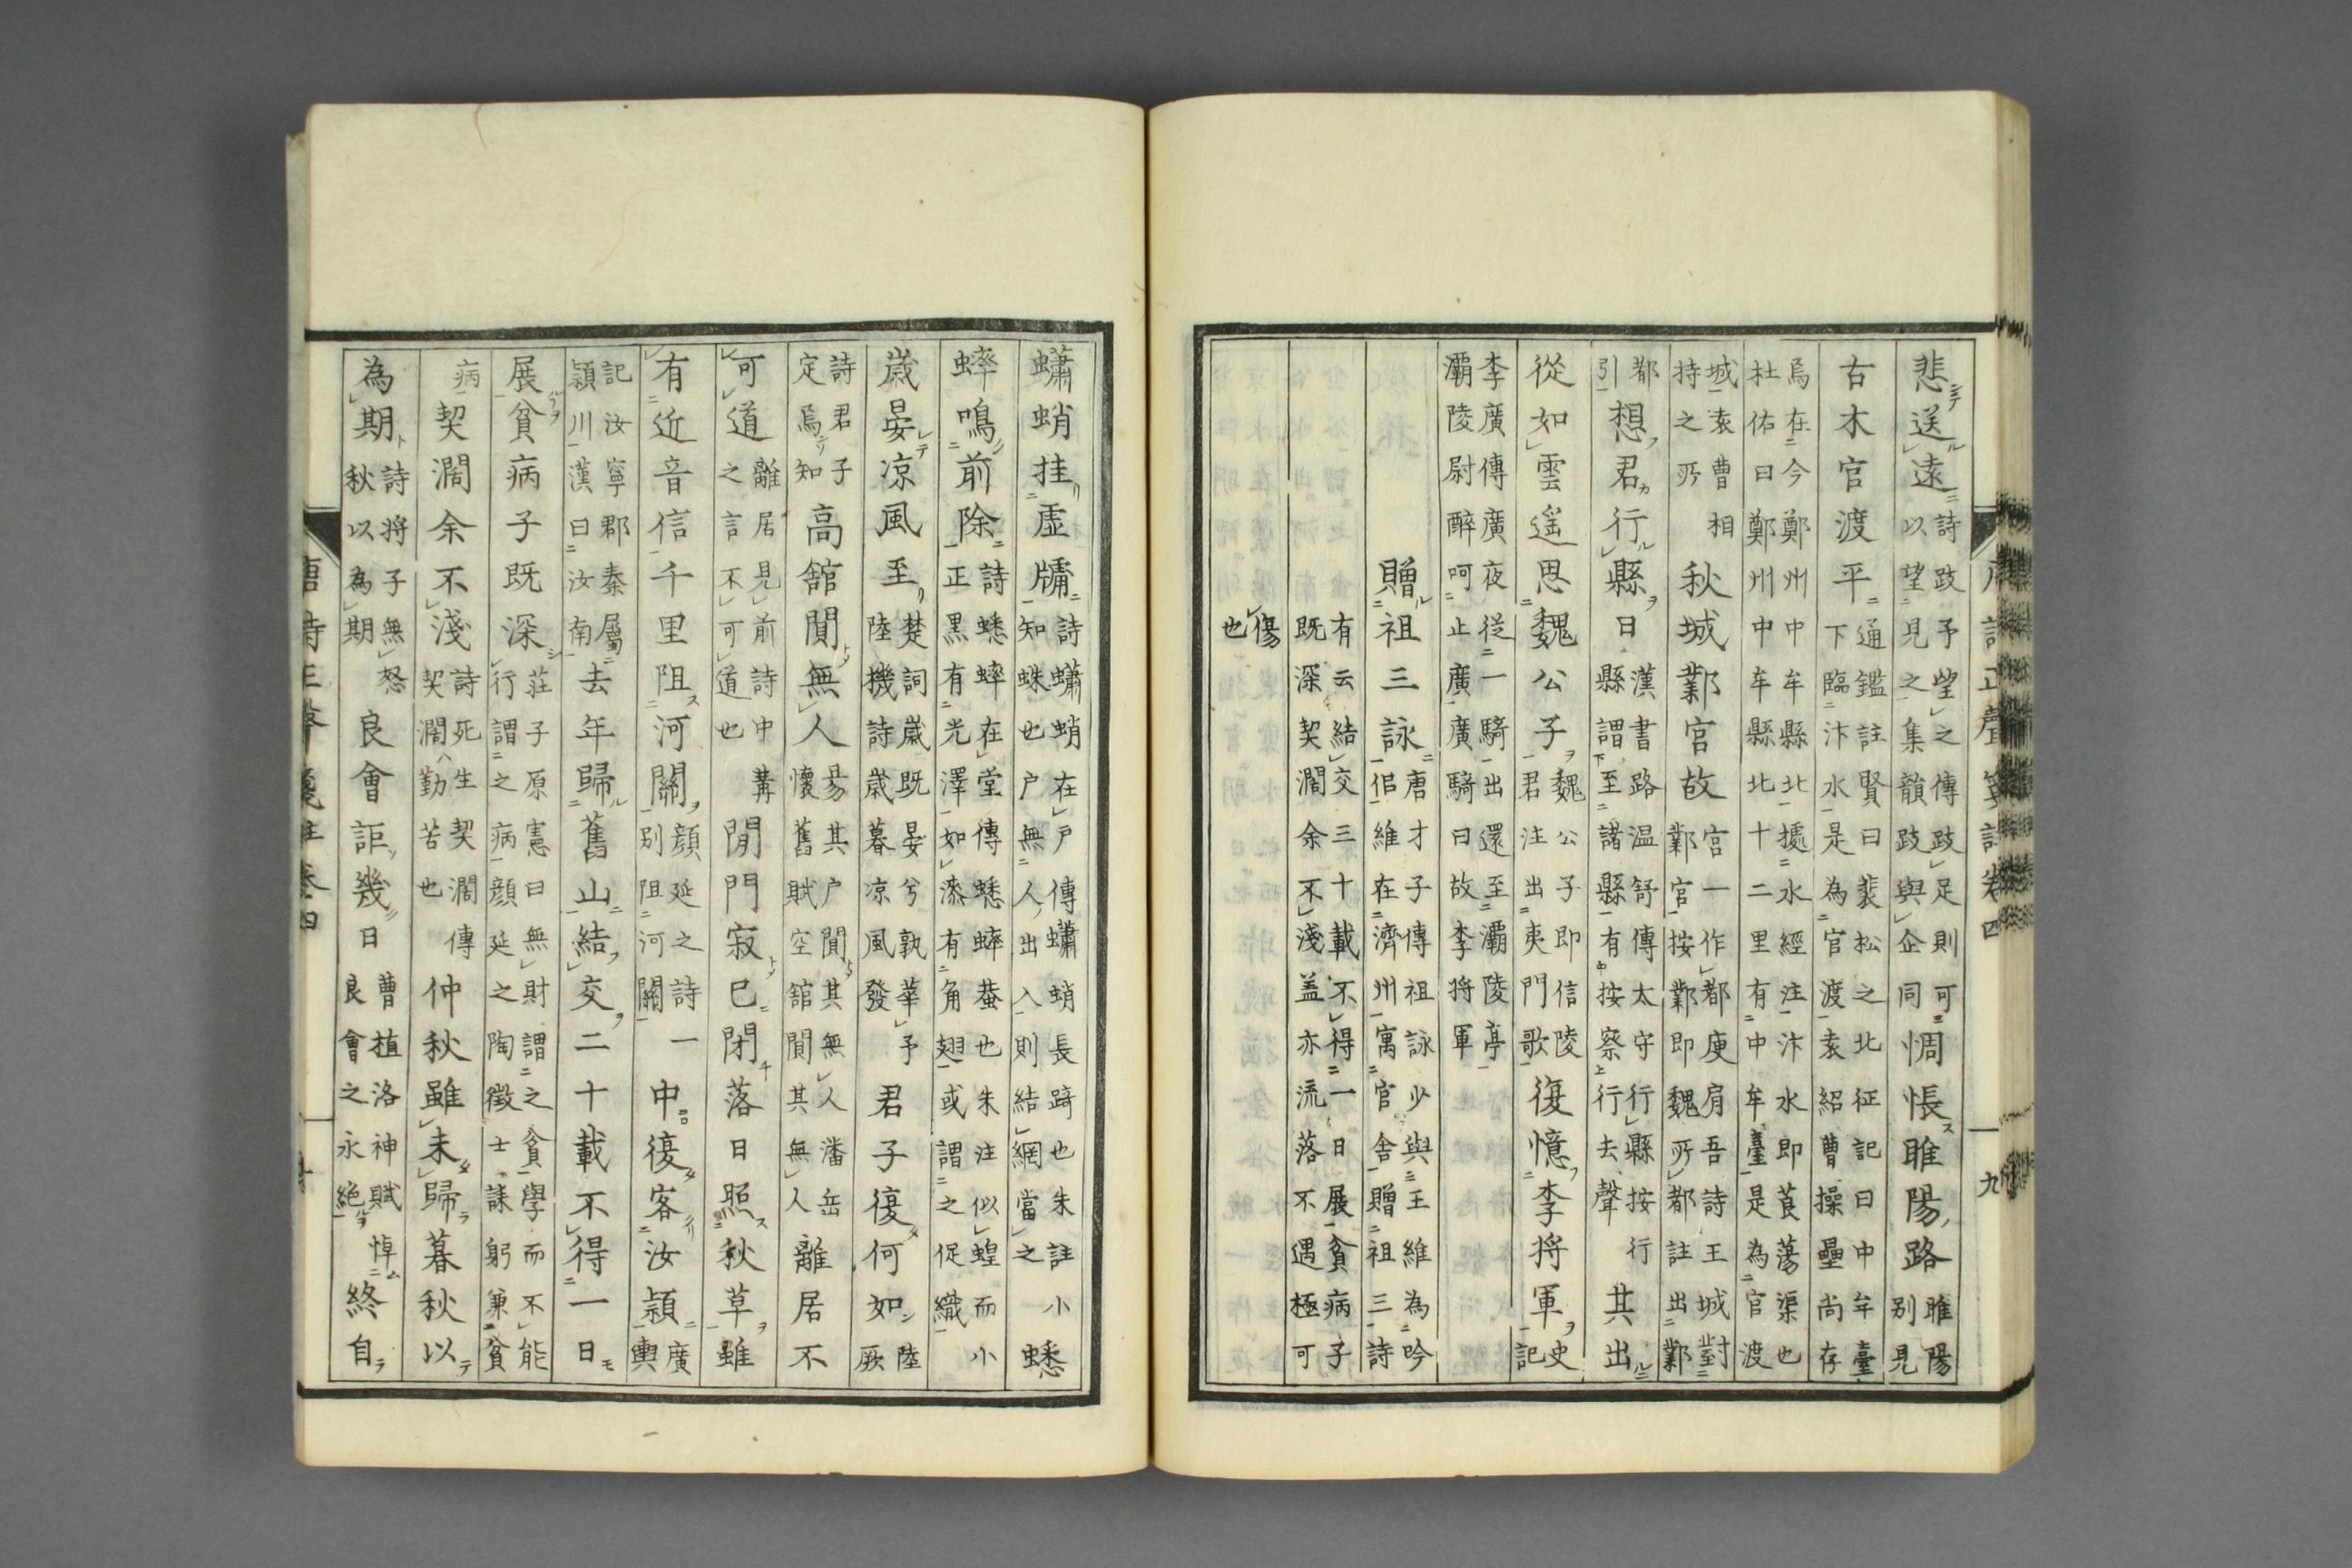 悲送遠詩跂予望之傳跂足則可以望見之集韻跂與企同惆悵睢陽路睢陽别見
古木官渡平通鑑註賢曰裴松之北征記曰中牟臺下臨汴水是為官渡袁紹曹操壘尚存
焉在今鄭州中牟縣北據水經注汴水即莨蕩渠也杜佑曰鄭州中牟縣北十二里有中牟臺是為官渡
城袁曹相持之所秋城鄴宮故宮一作都庾肩吾詩王城對鄴宮按鄴即魏所都註出鄴
都引想君行縣日漢書路温舒傳太守行縣按行縣謂至諸縣有按察行去聲其出
從如雲遥思魏公子魏公子即信陵君注出夷門歌復憶李将軍史記
李廣傳廣夜從一騎出還至灞陵亭灞陵尉醉呵止廣廣騎曰故李将軍
贈祖三詠唐才子傳祖詠少與王維為吟佀維在濟州寓官舍贈祖三詩
有云結交三十載不得一日展貧病子既深契濶余不淺盖亦流落不遇極可
傷也
九
蠨蛸挂虚牖詩蠨蛸在戸傳蠨蛸長踦也朱註小知蛛也户無人出入則結網當之蟋
蟀鳴前除詩蟋蟀在堂傳蟋蟀蛬也朱注似蝗而小正黒有光澤如漆有角翅或謂之促織
歳晏凉風至楚詞歳既晏兮孰華予陸機詩歳暮凉風發君子復何如陸厥
詩君子定焉知高舘闃無人易其户闃其無人潘岳懷舊賦空舘闃其無人離居不
可道離居見前詩中冓之言不可道也閒門寂已閉落日照秋草雖
有近音信千里阻河關顔延之詩一别阻河關中復客汝潁廣輿
記汝寧郡秦屬潁川漢曰汝南去年歸舊山結交二十載不得一日
展貧病子既深莊子原憲曰無財謂之貧學而不能行謂之病顔延之陶徴士誄躬兼貧
病契濶余不淺詩死生契濶傳契濶勤苦也仲秋雖未歸暮秋以
為期詩将子無怒秋以為期良會詎幾日曹植洛神賦悼良會之永絶終自